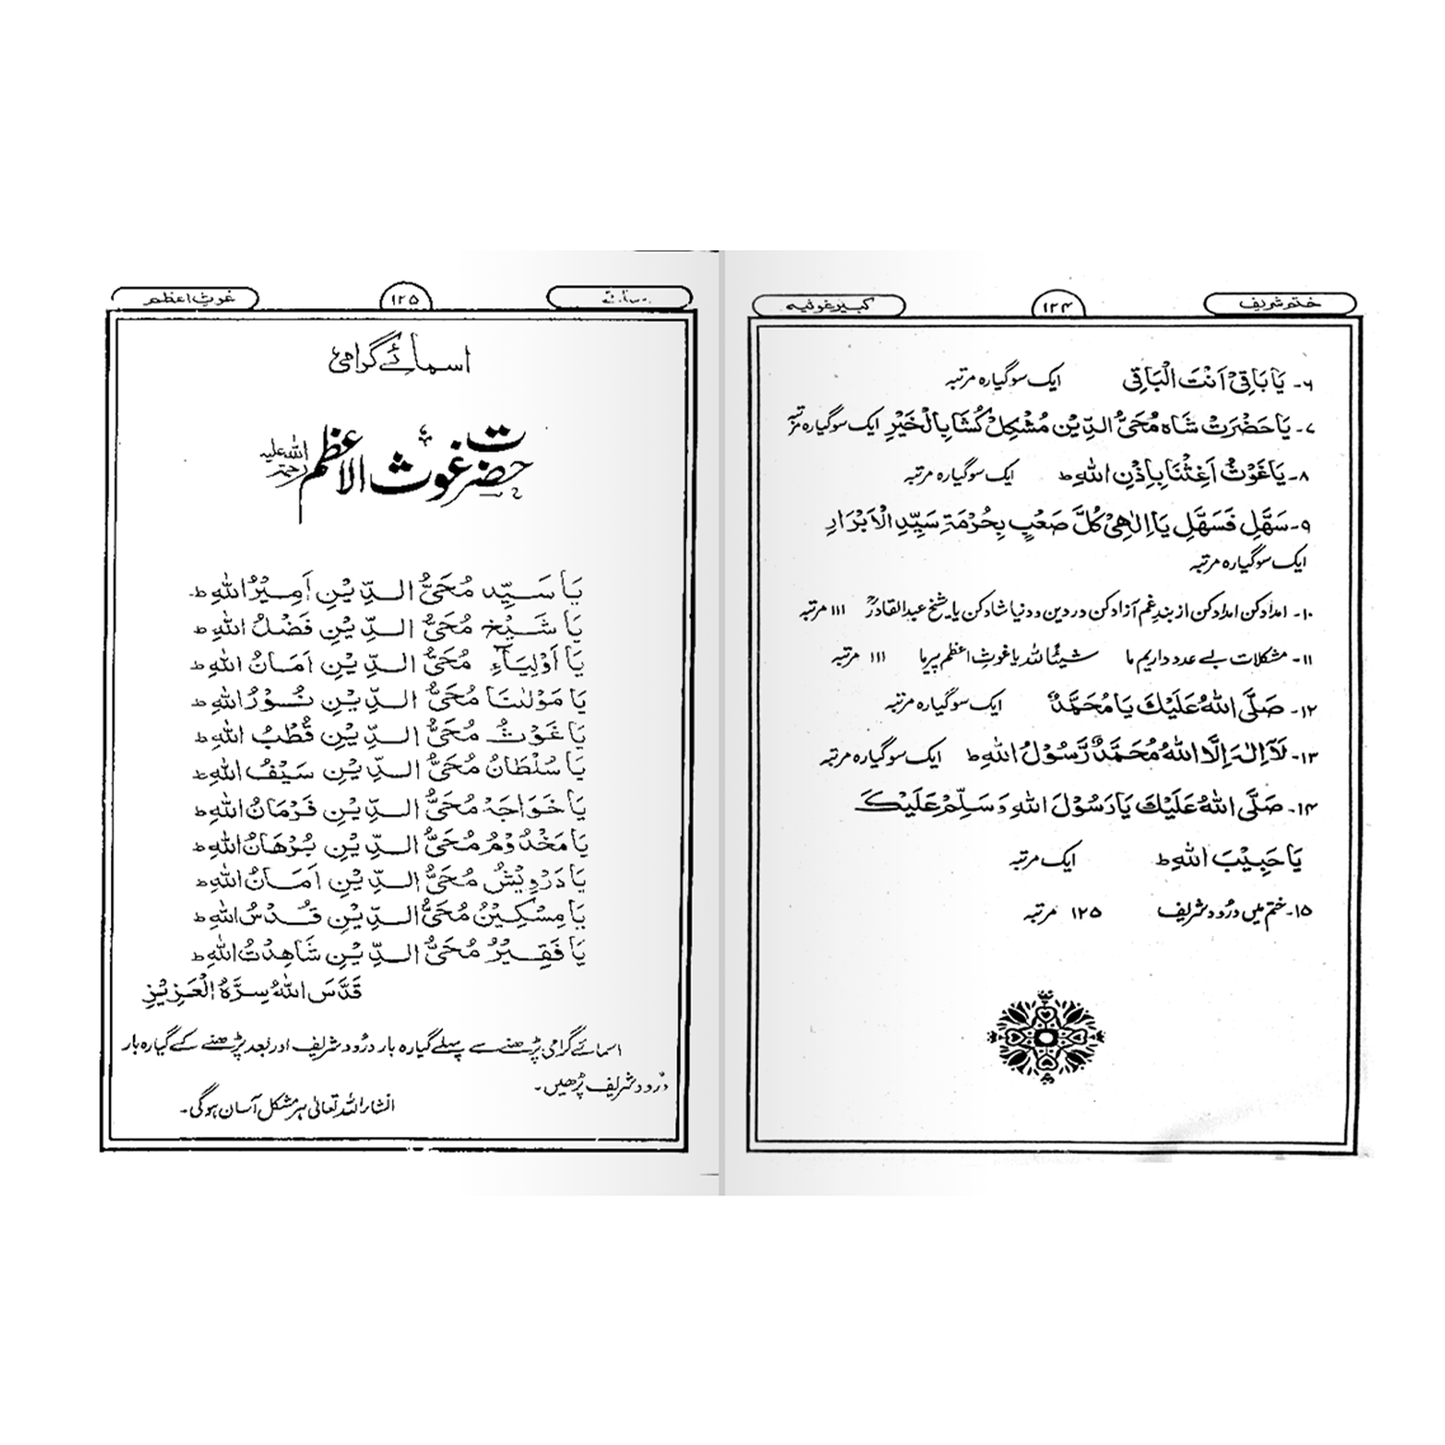 ختم شریف
۱۲۴
کبیر غوثیہ
۶۔ یَا بَاقِیْ اَنْتَ الْبَاقِی ایک سو گیارہ مرتبہ
۷۔ یَا حَضْرَتْ شَاہ مُحَیُّ الدِّیْن مُشْکِلْ کُشَا بِالْخَیْرِ ایک سو گیارہ مرتبہ
۸۔ یَا غَوْثْ اَغِثْنَا بِاِذْنِ اللہِ ط ایک سو گیارہ مرتبہ
۹۔ سَھِّلْ فَسَھِّلْ یَا اِلٰھِیْ کُلَّ صَعْبٍ بِحُرْمَۃِ سَیِّدِ الْاَبْرَارِ
ایک سو گیارہ مرتبہ
۱۰۔ امداد کن امداد کن از بندِ غم آزاد کن در دین و دنیا شاد کن یا شیخ عبدالقادرؒ ۱۱۱ مرتبہ
۱۱۔ مشکلات بے عدد داریم ما شیئًا للہ یا غوثِ اعظم پیرِ ما ۱۱۱ مرتبہ
۱۲۔ صَلَّی اللہُ عَلَیْكَ یَا مُحَمَّدٌ ایک سو گیارہ مرتبہ
۱۳۔ لَآ اِلٰہَ اِلَّا اللہُ مُحَمَّدٌ رَّسُوْلُ اللہِ ط ایک سو گیارہ مرتبہ
۱۴۔ صَلَّی اللہُ عَلَیْكَ یَا رَسُوْلَ اللہِ وَسَلِّمْ عَلَیْكَ
یَا حَبِیْبَ اللہِ ط ایک مرتبہ
۱۵۔ ختم میں درُود شریف ۱۲۵ مرتبہ
۱۲۵
غوثِ اعظم
اسمائے گرامی
حضرت غوث الاعظم رحمتہ اللہ علیہ
یَا سَیِّد مُحَیُّ الدِّیْنِ اَمِیْرُ اللہِ ط
یَا شَیْخ مُحَیُّ الدِّیْنِ فَضْلُ اللہِ ط
یَا اَوْلِیَآءِ مُحَیُّ الدِّیْنِ اَمَانُ اللہِ ط
یَا مَوْلٰنَا مُحَیُّ الدِّیْنِ نُوْرُ اللہِ ط
یَا غَوْثُ مُحَیُّ الدِّیْنِ قُطْبُ اللہِ ط
یَا سُلْطَانُ مُحَیُّ الدِّیْنِ سَیْفُ اللہِ ط
یَا خَوَاجَہْ مُحَیُّ الدِّیْنِ فَرْمَانُ اللہِ ط
یَا مَخْدُوْمُ مُحَیُّ الدِّیْنِ بُرْھَانُ اللہِ ط
یَا دَرْوِیْشُ مُحَیُّ الدِّیْنِ اَمَانُ اللہِ ط
یَا مِسْکِیْنُ مُحَیُّ الدِّیْنِ قُدْسُ اللہِ ط
یَا فَقِیْرُ مُحَیُّ الدِّیْنِ شَاھِدْتُ اللہِ ط
قَدَّسَ اللہُ سِرَّہُ الْعَزِیْزِ
اسمائے گرامی پڑھنے سے پہلے گیارہ بار درُود شریف اور بعد پڑھنے کے گیارہ بار
درُود شریف پڑھیں۔
انشاء اللہ تعالیٰ ہر مشکل آسان ہوگی۔